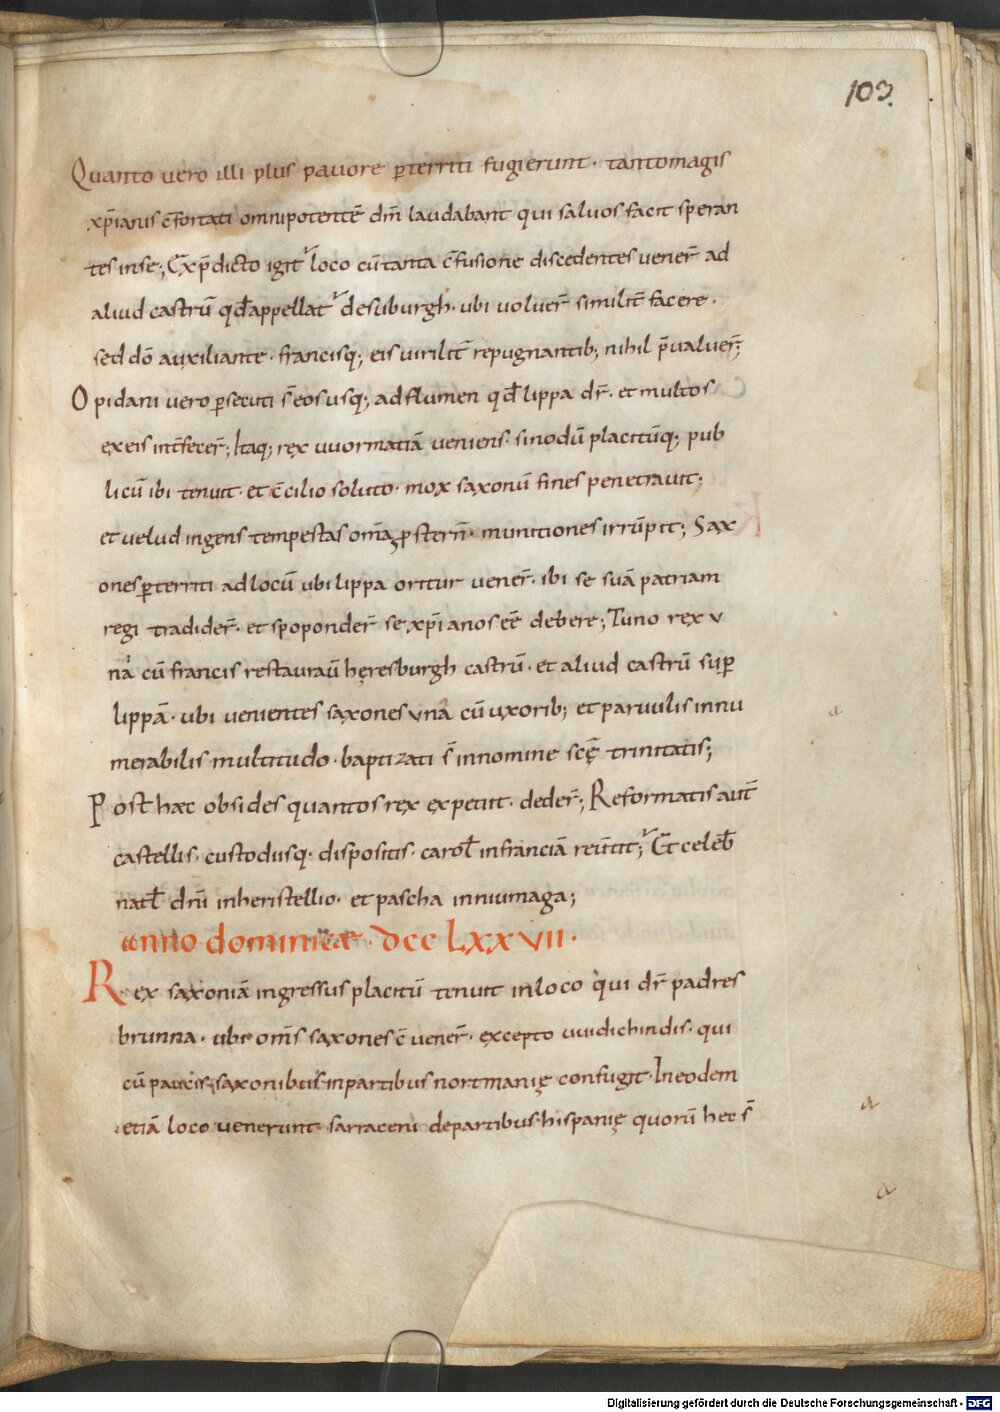 103.
Quanto vero illi plus pavore p̄territi fugierunt · tantomagis
xp̄ianis c̄fortati omnipotentē dm̄ laudabant qui salvos facit speran
tes in se; Ex p̄dicto igit᷒ loco cū tanta c̄fusione discedentes vener̄ ad
aliud castrū qd̄ appellat᷒ desuburgh · ubi voluer̄ similit̄ facere ·
sed dō auxiliante · francisq; eis virilit̄ repugnantib; nihil p̄valuer̄;
Opidani vero p̄secuti s̄ eos usq; ad flumen qd̄ lippa dr̄ · et multos
ex eis int̄fecer̄; Itaq; rex vvormatiā veniens · sinodū placitūq; pub
licū ibi tenuit · et c̄cilio soluto · mox saxonū fines penetravit;
et velud ingens tempestas om̄a ꝓstern̄ · munitiones irrūpit; Sax
ones p̄territi ad locū ubi lippa oritur vener̄ · ibi se suā patriam
regi tradider̄ · et spoponder̄ se xp̄ianos eē debere; Tunc rex v
nā cū francis restauravī hęresburgh castrū · et aliud castrū sup̄
lippā · ubi venientes saxones vnā cū uxorib; et parvulis innu
merabilis multitudo · baptizati s̄ in nomine scę̄ trinitatis;
Post hac obsides quantos rex expetiit · deder̄; Reformatis aut̄
castellis · custodusq · dispositis · carol̄ in franciā reūtit᷒; Et celeb̄
natl̄ dn̄i in heristellio · et pascha in niumaga;
anno dominicæ · dcc Lxxvii ·
Rex saxoniā ingressus placitū tenuit in loco qui dr̄ padres
brunna · ubi om̄s saxones c̄vener̄ · excepto vvidichindis · qui
cū paucis saxonibus in partibus nortmanię confugit · In eodem
etiā loco venerunt sarraceni de partibus hispanię quorū hec s̄
a
a
a
Digitalisierung gefördert durch die Deutsche Forschungsgemeinschaft - DFG